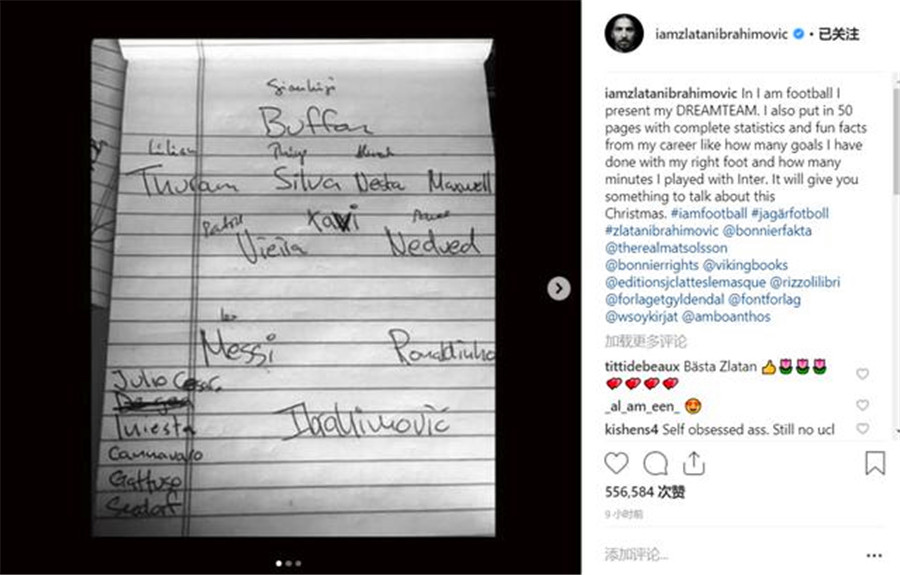 Gianluigi
Buffon
Lilian Thiago Alessandro
Thuram Silva Nesta Maxwell
Patrick Xavi Pavel
Vieira Nedved
Leo
Messi Ronaldinho
Julio Cesar
Iniesta Ibrahimović
Cannavaro
Gattuso
Seedorf
iamzlatanibrahimovic • 已关注
iamzlatanibrahimovic In I am football I
present my DREAMTEAM. I also put in 50
pages with complete statistics and fun facts
from my career like how many goals I have
done with my right foot and how many
minutes I played with Inter. It will give you
something to talk about this
Christmas. #iamfootball #jagärfotboll
#zlatanibrahimovic @bonnierfakta
@therealmatsolsson
@bonnierrights @vikingbooks
@editionsjclatteslemasque @rizzolilibri
@forlagetgyldendal @fontforlag
@wsoykirjat @amboanthos
加载更多评论
tittidebeaux Bästa Zlatan 👍🌷🌷🌷
💋💋💋💋
_al_am_een_ 😍
kishens4 Self obsessed ass. Still no ucl
556,584 次赞
9 小时前
添加评论...